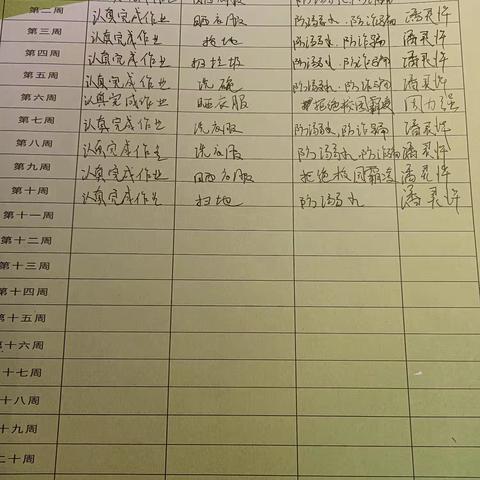 第二周 认真完成作业 晒衣服 防溺水.防诈骗 潘灵许
第三周 认真完成作业 拖地 防溺水.防诈骗 潘灵许
第四周 认真完成作业 扫垃圾 防溺水.防诈骗 潘灵许
第五周 认真完成作业 洗碗 防溺水.防诈骗 潘灵许
第六周 认真完成作业 晒衣服 拒绝校园霸凌 周力强
第七周 认真完成作业 洗衣服 防溺水,防诈骗 潘灵许
第八周 认真完成作业 洗衣服 防溺水,防诈骗 潘灵许
第九周 认真完成作业 晒衣服 拒绝校园霸凌 潘灵许
第十周 认真完成作业 扫地 防溺水 潘灵许
第十一周
第十二周
第十三周
第十四周
第十五周
第十六周
十七周
十八周
十九周
二十周